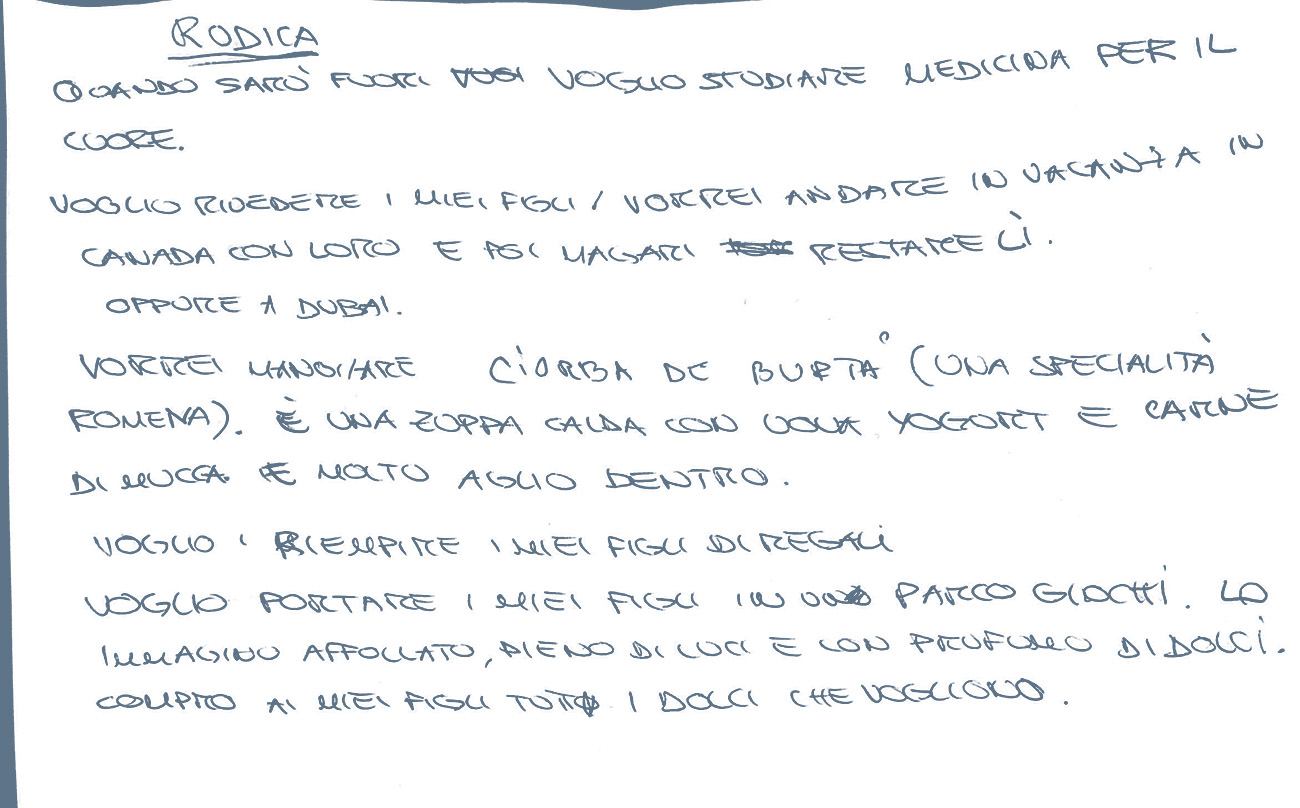 RODICA
QUANDO SARÒ FUORI VOGLIO STUDIARE MEDICINA PER IL
CUORE.
VOGLIO RIVEDERE I MIEI FIGLI / VORREI ANDARE IN VACANZA IN
CANADA CON LORO E POI MAGARI RESTARE LÌ.
OPPURE A DUBAI.
VORREI MANGIARE CIORBA DE BURTA° (UNA SPECIALITÀ
ROMENA). È UNA ZUPPA CALDA CON UOVA YOGORT E CARNE
DI MUCCA E MOLTO AGLIO DENTRO.
VOGLIO RIEMPIRE I MIEI FIGLI DI REGALI
VOGLIO PORTARE I MIEI FIGLI IN UN PARCO GIOCHI. LO
IMMAGINO AFFOLLATO, PIENO DI LUCI E CON PROFUMO DI DOLCI.
COMPRO AI MIEI FIGLI TUTTI I DOLCI CHE VOGLIONO.